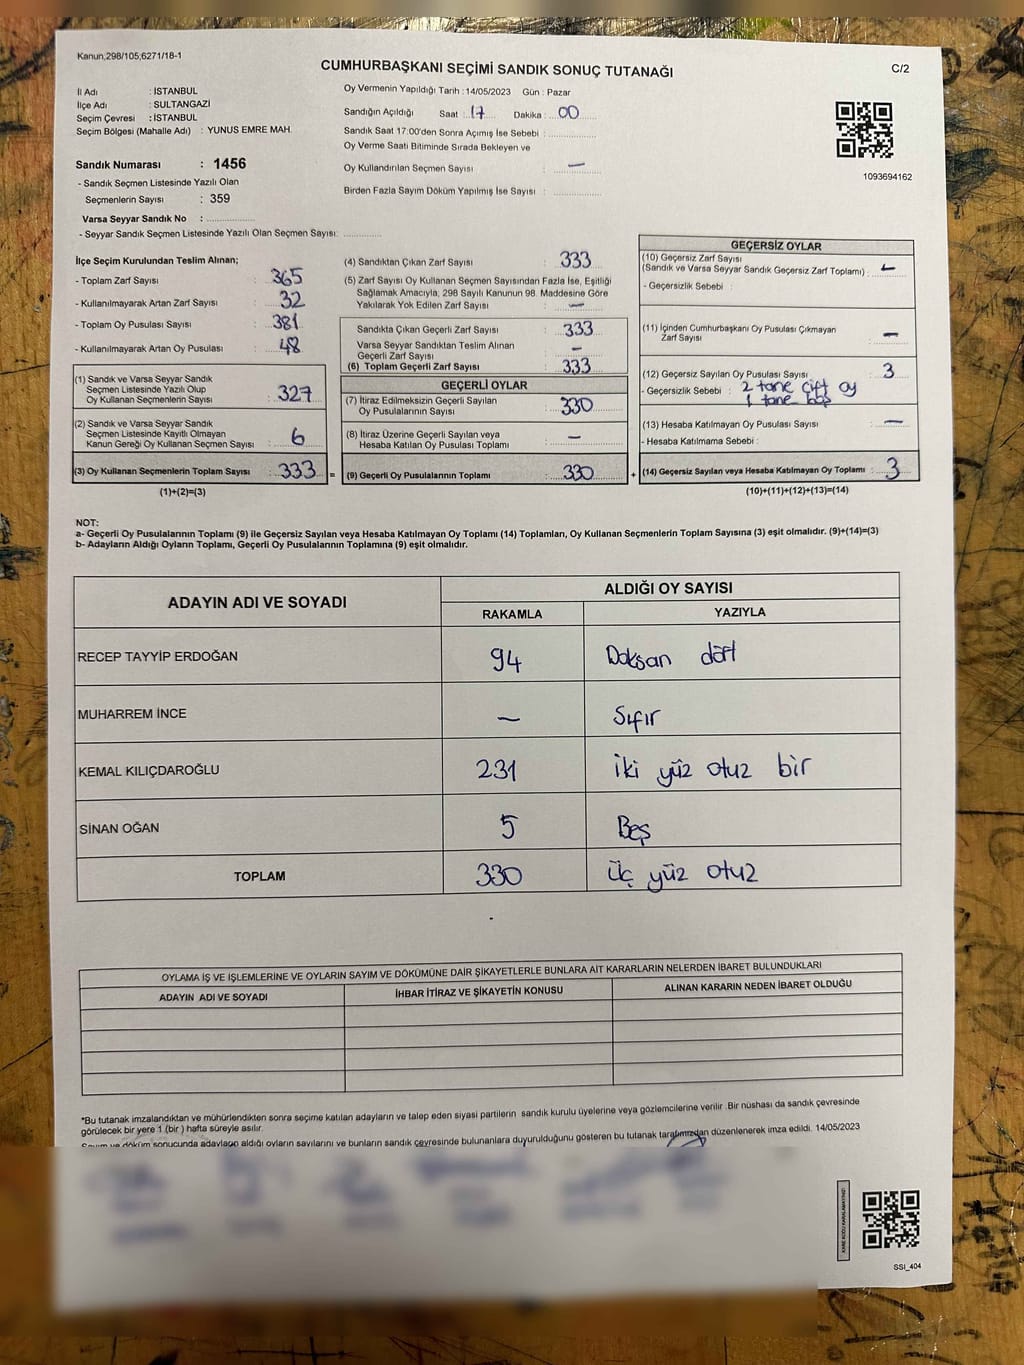 Kanun,298/105;6271/18-1
CUMHURBAŞKANI SEÇİMİ SANDIK SONUÇ TUTANAĞI
C/2
İl Adı : İSTANBUL
İlçe Adı : SULTANGAZİ
Seçim Çevresi : İSTANBUL
Seçim Bölgesi (Mahalle Adı) : YUNUS EMRE MAH.
Sandık Numarası : 1456
- Sandık Seçmen Listesinde Yazılı Olan
Seçmenlerin Sayısı : 359
Varsa Seyyar Sandık No : ................
- Seyyar Sandık Seçmen Listesinde Yazılı Olan Seçmen Sayısı: ............
Oy Vermenin Yapıldığı Tarih : 14/05/2023 Gün : Pazar
Sandığın Açıldığı Saat : 17 Dakika : 00
Sandık Saat 17:00'den Sonra Açımış İse Sebebi : ............
Oy Verme Saati Bitiminde Sırada Bekleyen ve
Oy Kullandırılan Seçmen Sayısı : —
Birden Fazla Sayım Döküm Yapılmış İse Sayısı : ............
1093694162
İlçe Seçim Kurulundan Teslim Alınan;
- Toplam Zarf Sayısı : 365
- Kullanılmayarak Artan Zarf Sayısı : 32
- Toplam Oy Pusulası Sayısı : 381
- Kullanılmayarak Artan Oy Pusulası : 48
(1) Sandık ve Varsa Seyyar Sandık
Seçmen Listesinde Yazılı Olup
Oy Kullanan Seçmenlerin Sayısı : 327
(2) Sandık ve Varsa Seyyar Sandık
Seçmen Listesinde Kayıtlı Olmayan
Kanun Gereği Oy Kullanan Seçmen Sayısı : 6
(3) Oy Kullanan Seçmenlerin Toplam Sayısı : 333 =
(1)+(2)=(3)
(4) Sandıktan Çıkan Zarf Sayısı : 333
(5) Zarf Sayısı Oy Kullanan Seçmen Sayısından Fazla İse, Eşitliği
Sağlamak Amacıyla, 298 Sayılı Kanunun 98. Maddesine Göre
Yakılarak Yok Edilen Zarf Sayısı : —
Sandıkta Çıkan Geçerli Zarf Sayısı : 333
Varsa Seyyar Sandıktan Teslim Alınan
Geçerli Zarf Sayısı : —
(6) Toplam Geçerli Zarf Sayısı : 333
GEÇERLİ OYLAR
(7) İtiraz Edilmeksizin Geçerli Sayılan
Oy Pusulalarının Sayısı : 330
(8) İtiraz Üzerine Geçerli Sayılan veya
Hesaba Katılan Oy Pusulası Toplamı : —
(9) Geçerli Oy Pusulalarının Toplamı : 330 +
GEÇERSİZ OYLAR
(10) Geçersiz Zarf Sayısı
(Sandık ve Varsa Seyyar Sandık Geçersiz Zarf Toplamı) : —
- Geçersizlik Sebebi :
(11) İçinden Cumhurbaşkanı Oy Pusulası Çıkmayan
Zarf Sayısı : —
(12) Geçersiz Sayılan Oy Pusulası Sayısı : 3
- Geçersizlik Sebebi : 2 tane çift oy
1 tane boş
(13) Hesaba Katılmayan Oy Pusulası Sayısı : —
- Hesaba Katılmama Sebebi :
(14) Geçersiz Sayılan veya Hesaba Katılmayan Oy Toplamı : 3
(10)+(11)+(12)+(13)=(14)
NOT:
a- Geçerli Oy Pusulalarının Toplamı (9) ile Geçersiz Sayılan veya Hesaba Katılmayan Oy Toplamı (14) Toplamları, Oy Kullanan Seçmenlerin Toplam Sayısına (3) eşit olmalıdır. (9)+(14)=(3)
b- Adayların Aldığı Oyların Toplamı, Geçerli Oy Pusulalarının Toplamına (9) eşit olmalıdır.
ADAYIN ADI VE SOYADI ALDIĞI OY SAYISI
RAKAMLA YAZIYLA
RECEP TAYYİP ERDOĞAN 94 Doksan dört
MUHARREM İNCE — Sıfır
KEMAL KILIÇDAROĞLU 231 İki yüz otuz bir
SİNAN OĞAN 5 Beş
TOPLAM 330 Üç yüz otuz
OYLAMA İŞ VE İŞLEMLERİNE VE OYLARIN SAYIM VE DÖKÜMÜNE DAİR ŞİKAYETLERLE BUNLARA AİT KARARLARIN NELERDEN İBARET BULUNDUKLARI
ADAYIN ADI VE SOYADI İHBAR İTİRAZ VE ŞİKAYETİN KONUSU ALINAN KARARIN NEDEN İBARET OLDUĞU
*Bu tutanak imzalandıktan ve mühürlendikten sonra seçime katılan adayların ve talep eden siyasi partilerin sandık kurulu üyelerine veya gözlemcilerine verilir .Bir nüshası da sandık çevresinde
görülecek bir yere 1 (bir ) hafta süreyle asılır.
Sayım ve döküm sonucunda adayların aldığı oyların sayılarını ve bunların sandık çevresinde bulunanlara duyurulduğunu gösteren bu tutanak tarafımızdan düzenlenerek imza edildi. 14/05/2023
SSI_404